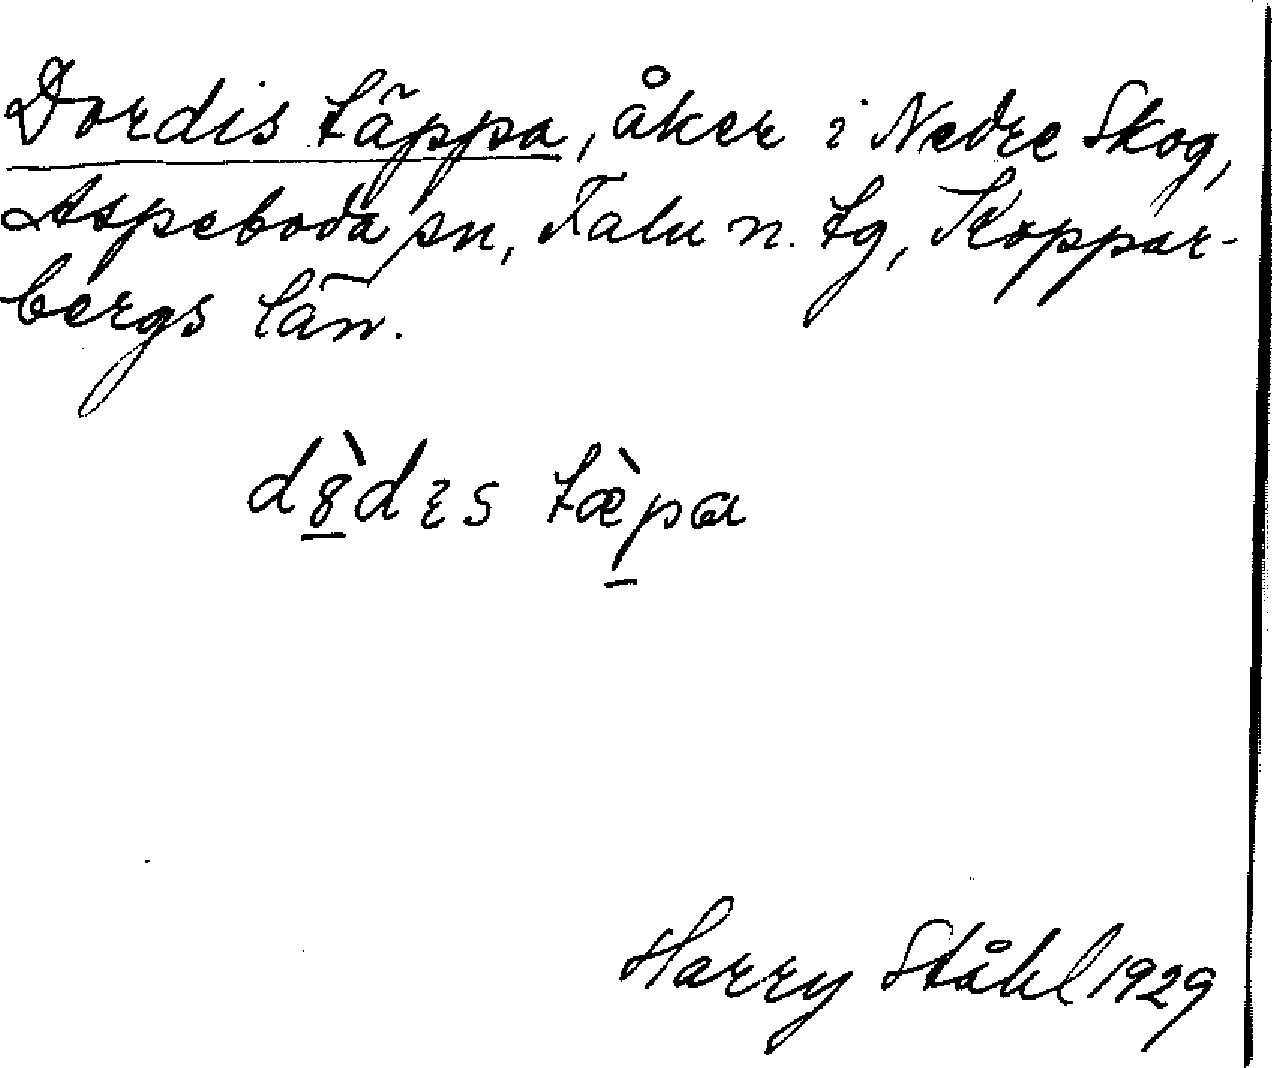 Dordis täppa, åker i Nedre Skog,
Aspeboda sn, Falu n. tg, Koppar-
bergs län.
dò̱dɛs tæ̀p̱a
Harry Ståhl 1929